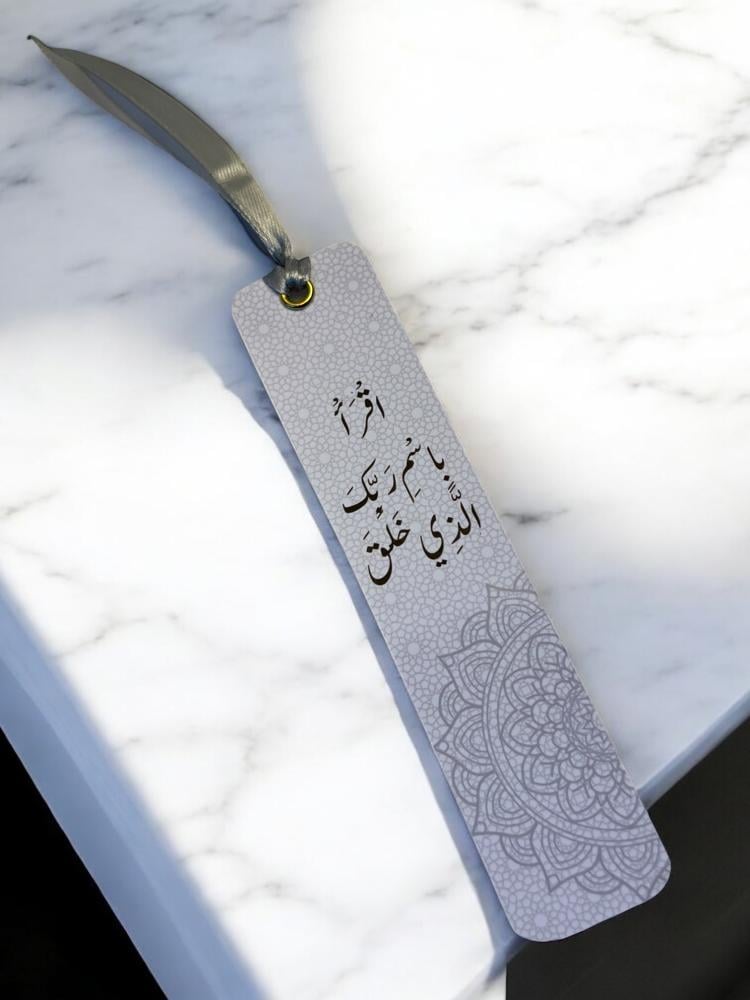 اقْرَأْ
بِاسْمِ رَبِّكَ
الَّذِي خَلَقَ